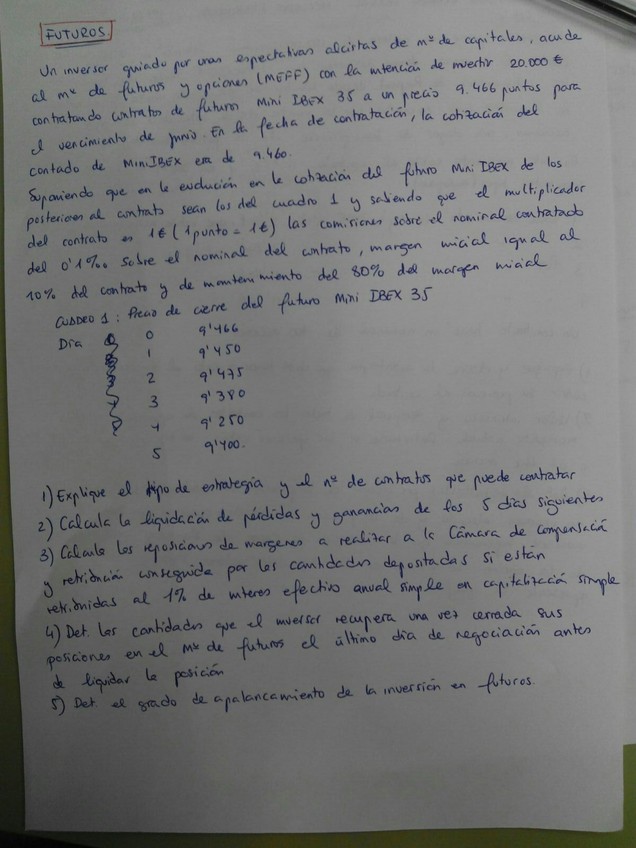 FUTUROS
Un inversor guiado por unas espectativas alcistas de mº de capitales, acude
al mº de futuros y opciones (MEFF) con la intención de invertir 20.000 €
contratando contratos de futuros Mini IBEX 35 a un precio 9.466 puntos para
el vencimiento de junio. En la fecha de contratación, la cotización del
contado de MiniIBEX era de 9.460.
Suponiendo que en la evolución en la cotización del futuro Mini IBEX de los
posteriores al contrato sean los del cuadro 1 y sabiendo que el multiplicador
del contrato es 1€ (1 punto = 1€) las comisiones sobre el nominal contratado
del 0'1‰ sobre el nominal del contrato, margen inicial igual al
10% del contrato y de mantenimiento del 80% del margen inicial
CUADRO 1: Precio de cierre del futuro Mini IBEX 35
Día 0 9'466
1 9'450
2 9'475
3 9'380
4 9'250
5 9'400.
1) Explique el tipo de estrategia y el nº de contratos que puede contratar
2) Calcula la liquidación de pérdidas y ganancias de los 5 días siguientes
3) Calcula las reposiciones de margenes a realizar a la Cámara de compensació
y retribución conseguida por las cantidades depositadas si están
retribuidas al 1% de interes efectivo anual simple en capitalizació simple
4) Det. las cantidades que el inversor recupera una vez cerrada sus
posiciones en el mº de futuros el último día de negociación antes
de liquidar la posición
5) Det. el grado de apalancamiento de la inversión en futuros.